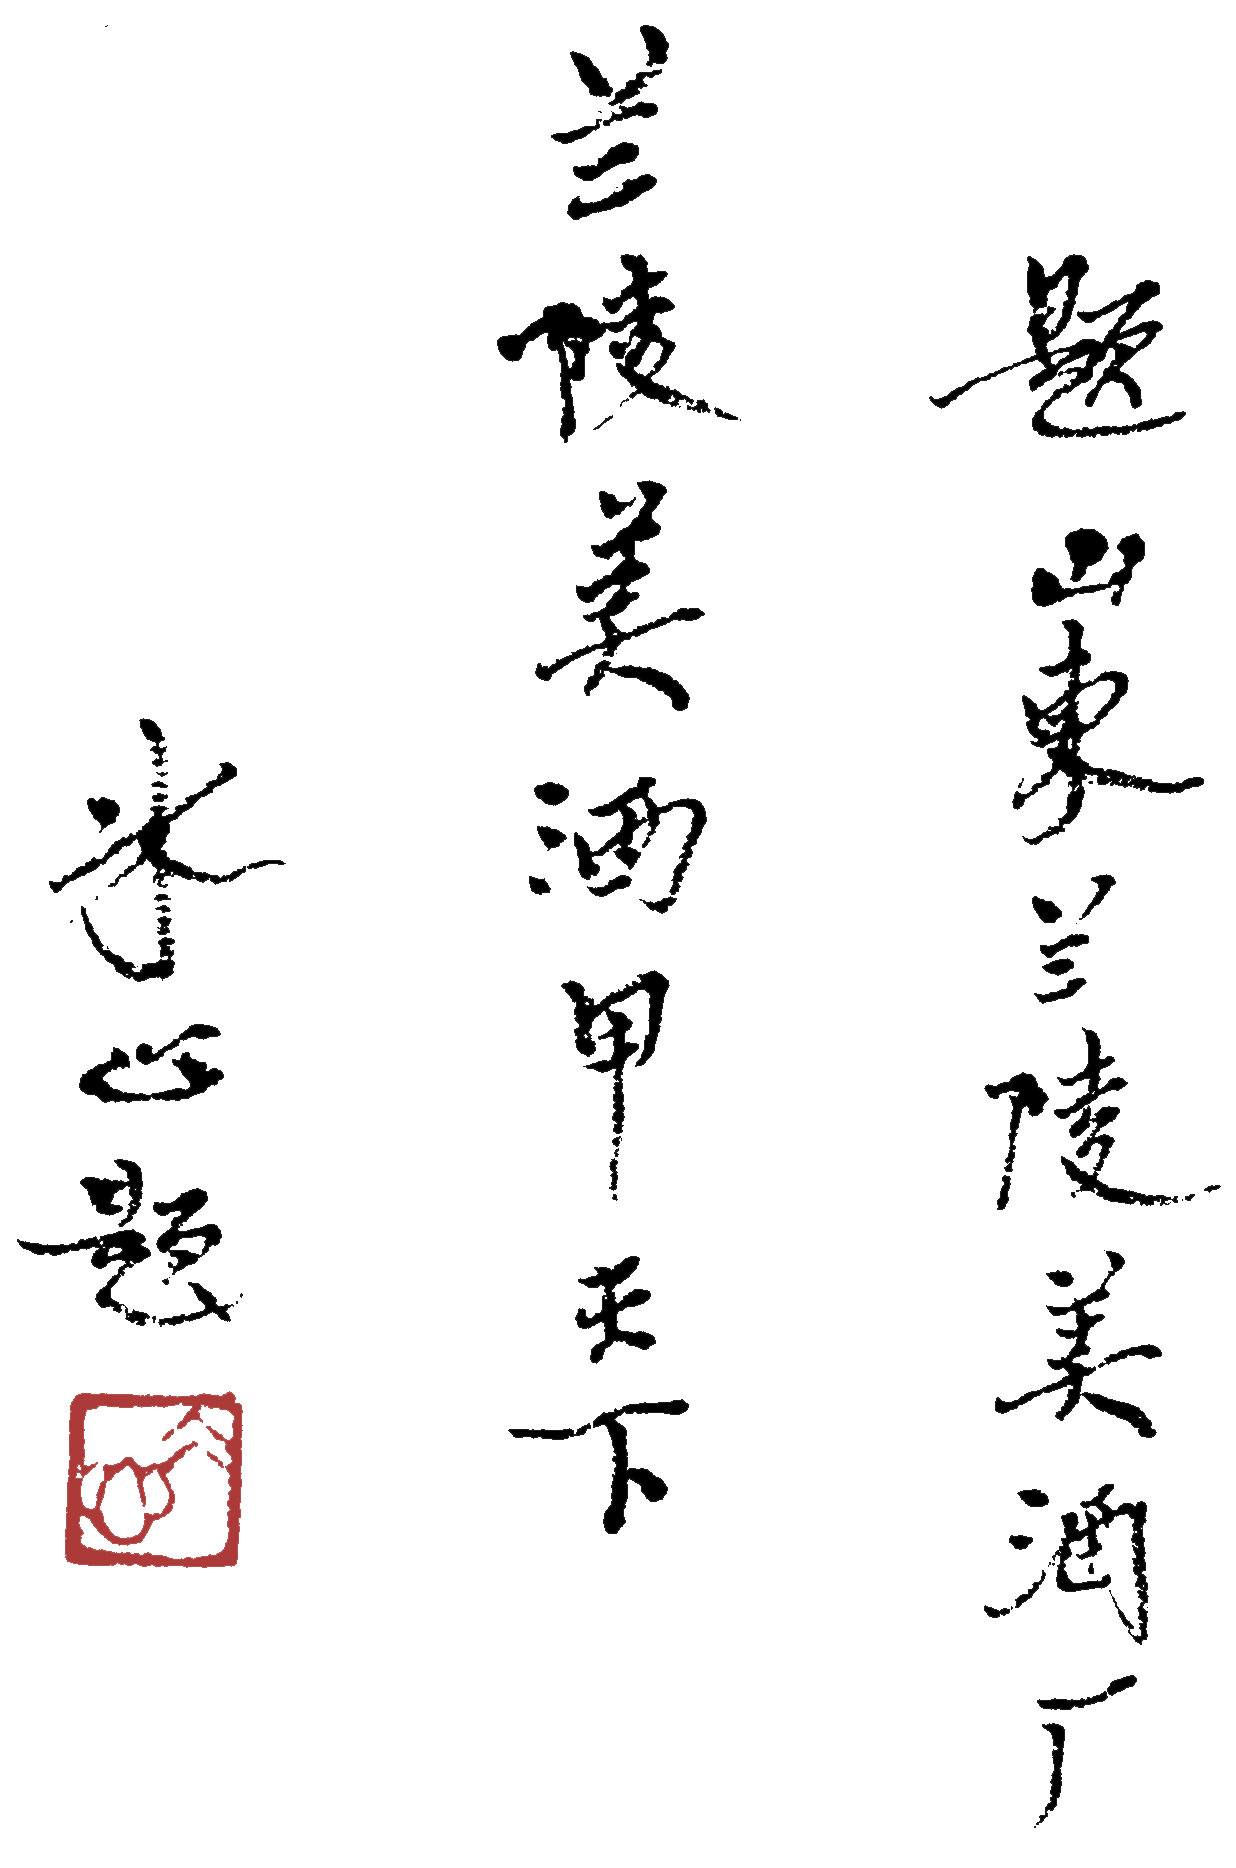 题山东兰陵美酒厂
兰陵美酒甲天下